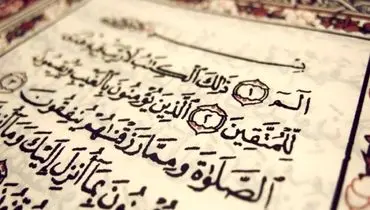 الٓمٓ ١ ذَٰلِكَ ٱلْكِتَٰبُ لَا رَيْبَ فِيهِ هُدًى
لِّلْمُتَّقِينَ ٢ ٱلَّذِينَ يُؤْمِنُونَ بِٱلْغَيْبِ وَيُقِيمُونَ
ٱلصَّلَوٰةَ وَمِمَّا رَزَقْنَٰهُمْ يُنفِقُونَ
يُؤْمِنُونَ بِمَآ أُنزِلَ إِلَيْكَ وَمَآ